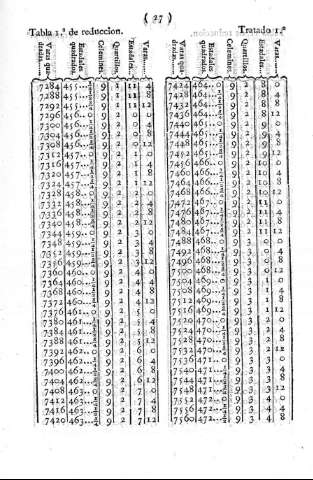 ( 27 )
Tabla 1.ª de reduccion.
Tratado 1.º
Varas quadradas. Estadales quadrados. Celemines. Quartillos. Estadales. Varas.
7284 455...¼ 9 1 11 4
7288 455...½ 9 1 11 8
7292 455...¾ 9 1 11 12
7296 456...0 9 2 0 0
7300 456...¼ 9 2 0 4
7304 456...½ 9 2 0 8
7308 456...¾ 9 2 0 12
7312 457...0 9 2 1 0
7316 457...¼ 9 2 1 4
7320 457...½ 9 2 1 8
7324 457...¾ 9 2 1 12
7328 458...0 9 2 2 0
7332 458...¼ 9 2 2 4
7336 458...½ 9 2 2 8
7340 458...¾ 9 2 2 12
7344 459...0 9 2 3 0
7348 459...¼ 9 2 3 4
7352 459...½ 9 2 3 8
7356 459...¾ 9 2 3 12
7360 460...0 9 2 4 0
7364 460...¼ 9 2 4 4
7368 460...½ 9 2 4 8
7372 460...¾ 9 2 4 12
7376 461...0 9 2 5 0
7380 461...¼ 9 2 5 4
7384 461...½ 9 2 5 8
7388 461...¾ 9 2 5 12
7392 462...0 9 2 6 0
7396 462...¼ 9 2 6 4
7400 462...½ 9 2 6 8
7404 462...¾ 9 2 6 12
7408 463...0 9 2 7 0
7412 463...¼ 9 2 7 4
7416 463...½ 9 2 7 8
7420 463...¾ 9 2 7 12
Varas quadradas. Estadales quadrados. Celemines. Quartillos. Estadales. Varas.
7424 464...0 9 2 8 0
7428 464...¼ 9 2 8 4
7432 464...½ 9 2 8 8
7436 464...¾ 9 2 8 12
7440 465...0 9 2 9 0
7444 465...¼ 9 2 9 4
7448 465...½ 9 2 9 8
7452 465...¾ 9 2 9 12
7456 466...0 9 2 10 0
7460 466...¼ 9 2 10 4
7464 466...½ 9 2 10 8
7468 466...¾ 9 2 10 12
7472 467...0 9 2 11 0
7476 467...¼ 9 2 11 4
7480 467...½ 9 2 11 8
7484 467...¾ 9 2 11 12
7488 468...0 9 3 0 0
7492 468...¼ 9 3 0 4
7496 468...½ 9 3 0 8
7500 468...¾ 9 3 0 12
7504 469...0 9 3 1 0
7508 469...¼ 9 3 1 4
7512 469...½ 9 3 1 8
7516 469...¾ 9 3 1 12
7520 470...0 9 3 2 0
7524 470...¼ 9 3 2 4
7528 470...½ 9 3 2 8
7532 470...¾ 9 3 2 12
7536 471...0 9 3 3 0
7540 471...¼ 9 3 3 4
7544 471...½ 9 3 3 8
7548 471...¾ 9 3 3 12
7552 472...0 9 3 4 0
7556 472...¼ 9 3 4 4
7560 472...½ 9 3 4 8